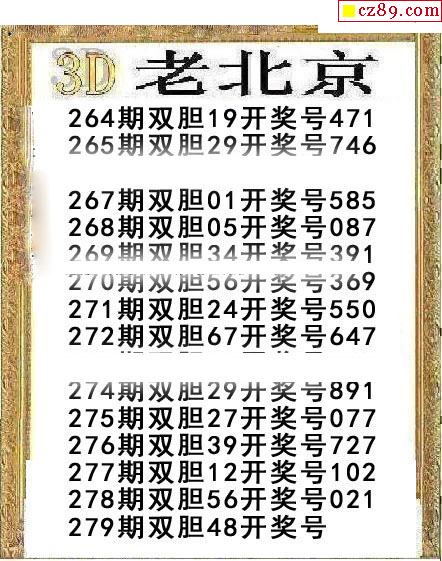 cz89.com
3D 老北京
264期双胆19开奖号471
265期双胆29开奖号746
267期双胆01开奖号585
268期双胆05开奖号087
269期双胆34开奖号391
270期双胆56开奖号369
271期双胆24开奖号550
272期双胆67开奖号647
274期双胆29开奖号891
275期双胆27开奖号077
276期双胆39开奖号727
277期双胆12开奖号102
278期双胆56开奖号021
279期双胆48开奖号